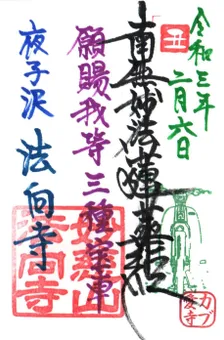 令和三年
二月六日
丑
南無妙法蓮華経
願賜我等三種宝車
夜子沢 法向寺
法向寺